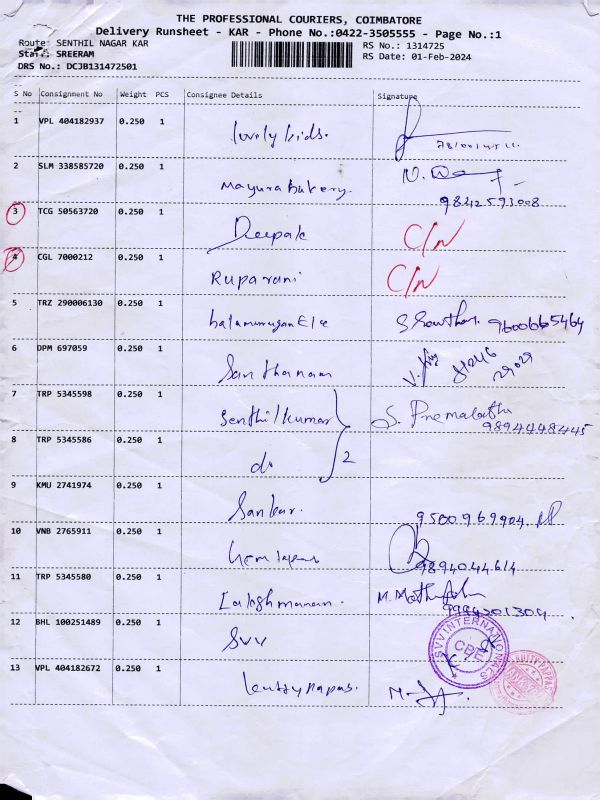 THE PROFESSIONAL COURIERS, COIMBATORE
Delivery Runsheet - KAR - Phone No.:0422-3505555 - Page No.:1
Route: SENTHIL NAGAR KAR
RS No.: 1314725
Staff: SREERAM
RS Date: 01-Feb-2024
DRS No.: DCJB131472501
S No Consignment No Weight PCS Consignee Details Signature
1 VPL 404182937 0.250 1 lovely kids.
2 SLM 338585720 0.250 1 Mayura Bakery.
9842591008
3 TCG 50563720 0.250 1 Deepak C/N
4 CGL 7000212 0.250 1 Ruparani C/N
5 TRZ 290006130 0.250 1 balamurugan Ele 9600665464
6 DPM 697059 0.250 1 Santhanam
7 TRP 5345598 0.250 1 Senthilkumar S. Premalatha
9894448445
8 TRP 5345586 0.250 1 do 2
9 KMU 2741974 0.250 1 Sankar. 9500969904
10 VNB 2765911 0.250 1
9894044614
11 TRP 5345580 0.250 1 Lakshmanan.
9994201304
12 BHL 100251489 0.250 1 SVV
SVV INTERNATIONALS
CBE
13 VPL 404182672 0.250 1